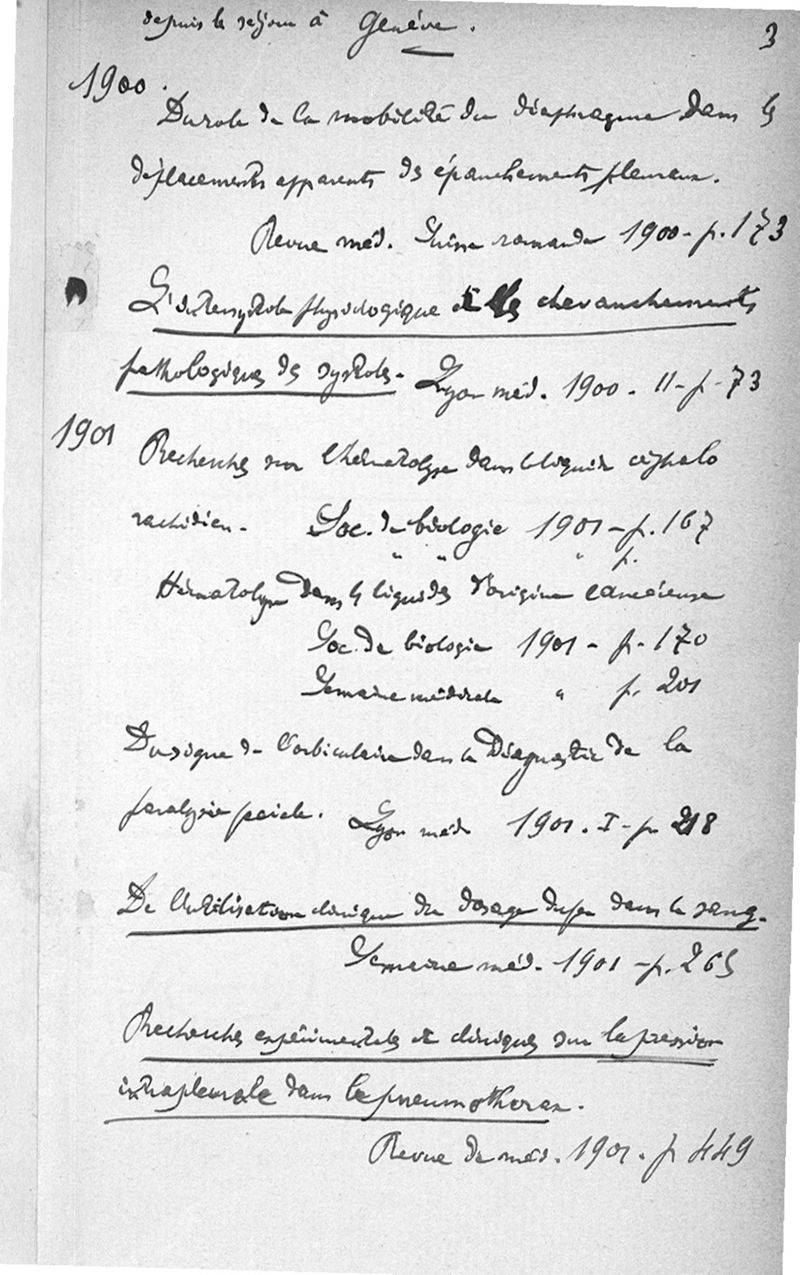 depuis le séjour à Genève.
3
1900.
Du role de la mobilité du diaphragme dans les
déplacements apparents des épanchements pleuraux.
Revue méd. Suisse romande 1900 - p. 173
L'extrasystole physiologique et les chevauchements
pathologiques des systoles - Lyon méd. 1900. II - p - 73
1901 Recherches sur l'hématolyse dans le liquide céphalo
rachidien - Soc. de biologie 1901 - p. 167
" " " p.
Hématolyse dans les liquides d'origine cancéreuse
Soc. de biologie 1901 - p. 170
Semaine médicale " p. 201
Du signe de l'orbiculaire dans le Diagnostic de la
paralysie faciale. Lyon méd 1901. I - p. 218
De l'utilisation clinique du dosage du fer dans le sang.
Semaine méd. 1901 - p. 265
Recherches expérimentales et cliniques sur la pression
intrapleurale dans le pneumothorax.
Revue de méd. 1901. p 449